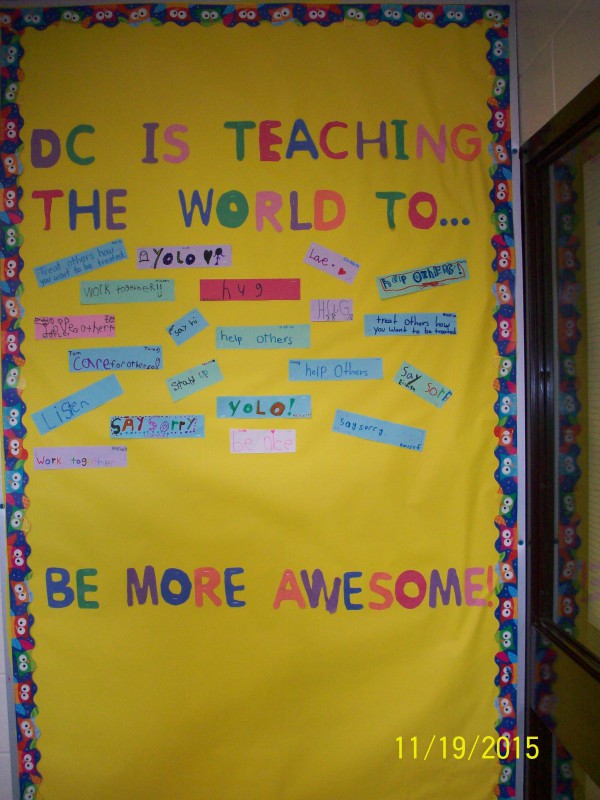 DC IS TEACHING
THE WORLD TO...
Treat others how
you want to be treated
YOLO
Love.
help OthERS!
work together
hug
HUG
treat others how
you want to be treated
say hi
help others
Care for others
Stand up
help Others
Say Sorry
Listen
SAY Sorry
YOLO!
be nice
say sorry
Work together
BE MORE AWESOME!
11/19/2015